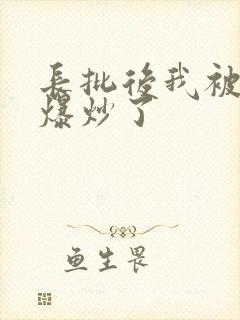 長批後我被
爆炒了
鱼生畏